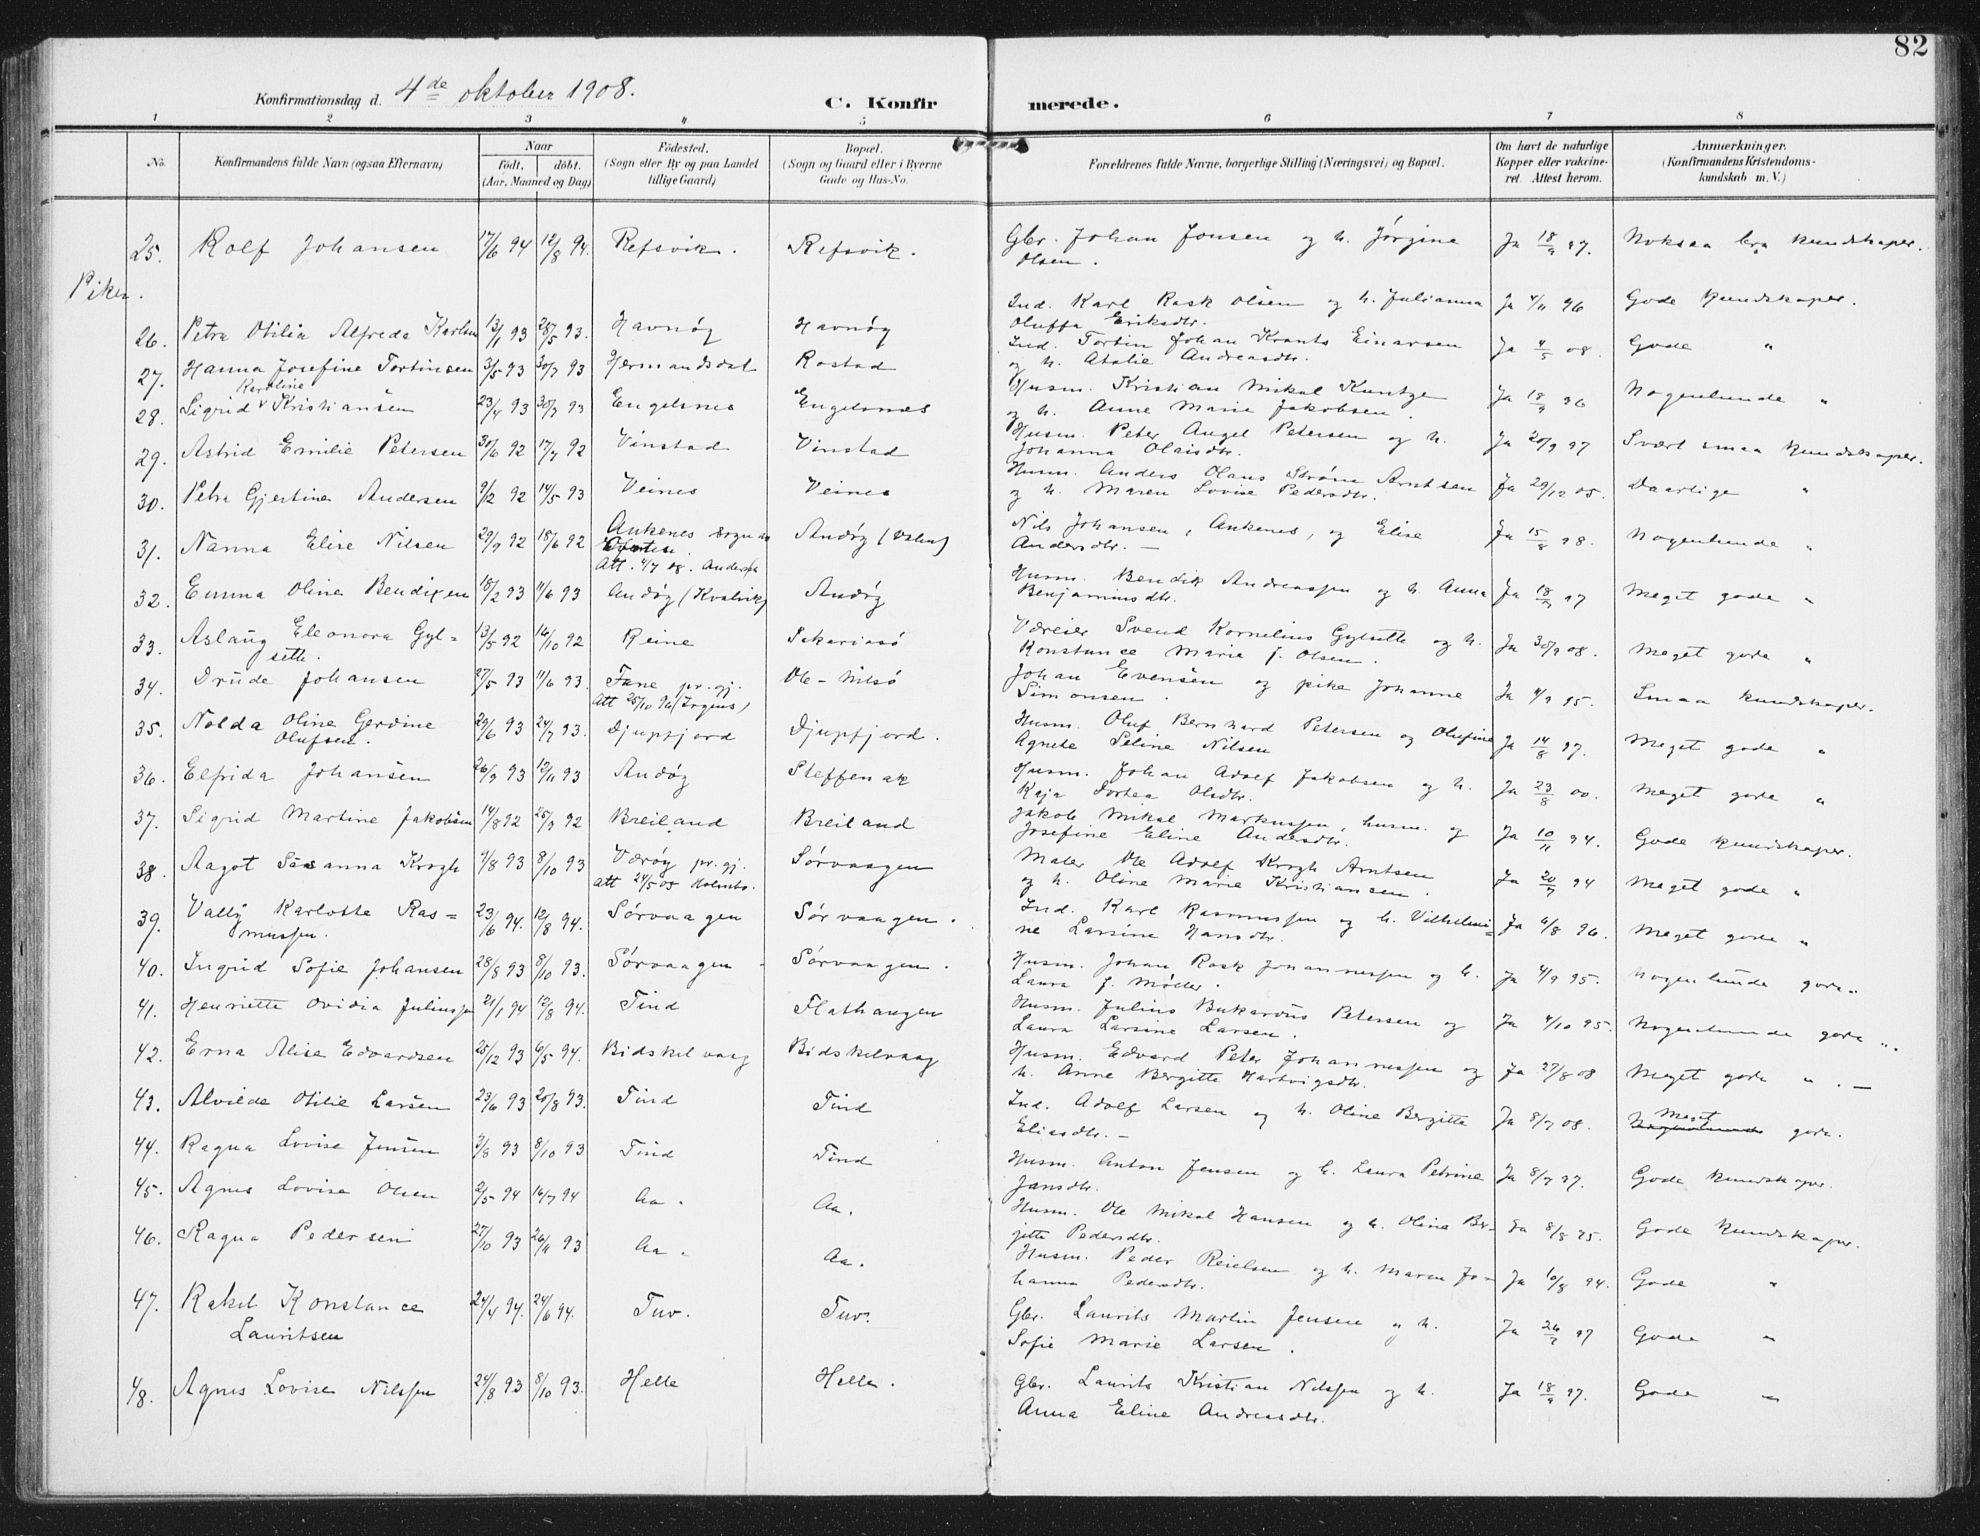 82
Konfirmationsdag d. 4de oktober 1908.
C. Konfirmerede.
1 2 3 4 5 6 7 8
No. Konfirmandens fulde Navn (ogsaa Efternavn) Naar født, døbt. (Aar, Maaned og Dag) Fødested. (Sogn eller By og paa Landet tillige Gaard) Bopæl. (Sogn og Gaard eller i Byerne Gade og Hus-No. Forældrenes fulde Navne, borgerlige Stilling (Næringsvei) og Bopæl. Om havt de naturlige Kopper eller vakcineret. Attest herom. Anmerkninger. (Konfirmandens Kristendomskundskab m. V.)
25. Rolf Johansen 17/6 94 12/8 94. Refsvik. Refsvik. Gbr. Johan Jonsen og h. Jørgine Olsen. Ja 18/9 97. Noksaa bra kundskaper.
Piker.
26. Petra Otilia Alfreda Karlsen 13/1 93 28/5 93. Havnøy Havnøy Ind. Karl Rask Olsen og h. Julianna Oluffa Eriksdtr. Ja 4/11 96 Gode kundskaper.
27. Hanna Josefine Tortinsen 3/5 93 30/7 93 Hermandsdal Rostad Ind. Tortin Johan Krants Einarsen og h. Atalie Andreasdtr. Ja 4/5 08. Gode "
28. Sigrid Karoline Kristiansen 23/4 93 30/7 93 Engelsnes Engelsnæs Husm. Kristian Mikal Kuntze og h. Anne Marie Jakobsen. Ja 18/9 96 Nogenlunde "
29. Astrid Emilie Petersen 30/6 92 17/7 92 Vinstad Vinstad Husm. Peter Angel Petersen og h. Johanna Olaisdtr. Ja 20/9 97 Svært smaa kundskaper.
30. Petra Gjertine Andersen 9/2 92 14/5 93 Veines Veines Husm. Anders Olaus Strøm Arntsen og h. Maren Lovise Pedersdtr. Ja 29/12 05. Daarlige "
31. Nanna Elise Nilsen 29/9 92 18/6 92 Ankenes sogn Att. 4/7 08. Andøy (Valen) Nils Johansen, Ankenes, og Elise Andersdtr. — Ja 15/8 98. Nogenlunde "
32. Emma Oline Bendixen 18/2 93 11/6 93 Andøy (Kvalvik) Andøy Husm. Bendik Andreassen og h. Anna Benjaminsdtr. Ja 18/9 97 Meget gode "
33. Aslaug Eleonora Gylsette. 13/5 92 16/10 92 Reine Sakariasø Væreier Svend Kornelius Gylsette og h. Konstance Marie J. Olsen. Ja 30/9 08. Meget gode "
34. Drude Johansen 27/5 93 11/6 93. Fane pr.gj. Att 25/10 96 (Irgens) Ole-Nilsø Johan Evensen og pike Johanne Simonsen. Ja 4/9 95. Smaa kundskaper.
35. Nolda Oline Gerdine Olufsen. 29/6 93 24/7 93. Djupfjord Djupfjord. Husm. Oluf Bernhard Petersen og Olufine Agnete Seline Nilsen Ja 14/8 97. Meget gode "
36. Elfrida Johansen 26/9 93 12/11 93 Andøy Steffenak Husm. Johan Adolf Jakobsen og h. Kaja Dortea Olsdtr. Ja 23/8 00. Meget gode "
37. Sigrid Martine Jakobsen 14/8 92 25/9 92 Breiland Breiland Jakob Mikal Markussen, husm. og Josefine Eline Andersdtr. Ja 10/11 94. Gode kundskaper.
38. Aagot Susanna Krogh 9/8 93 8/10 93 Værøy pr.gj. Att 24/5 05 Holmbo. Sørvaagen Maler Ole Adolf Krogh Arntsen og h. Oline Marie Kristiansen. Ja 20/7 94 Meget gode "
39. Vally Karlotte Rasmussen. 23/6 94. 12/8 94. Sørvaagen Sørvaagen. Ind. Karl Rasmussen og h. Vilhelmine Larsine Hansdtr. Ja 6/8 96. Meget gode "
40. Ingrid Sofie Johansen 28/8 93 8/10 93. Sørvaagen Sørvaagen. Husm. Johan Rask Johannessen og h. Laura J. Møller. Ja 4/9 95. Nogenlunde gode "
41. Henriette Ovidia Juliussen 21/1 94 12/8 94. Tind Flathaugen Husm. Julius Bukardus Petersen og Laura Larsine Larsen. Ja 4/10 95. Nogenlunde gode ".
42. Erna Alise Edvardsen 25/12 93 6/5 94. Bidskelvaag Bidskelvaag Husm. Edvard Peter Johannessen og h. Anne Bergitte Hartvigsdtr. Ja 27/8 08 Meget gode ". —
43. Alvilde Otilie Larsen 23/6 93 20/8 93. Tind Tind Ind. Adolf Larsen og h. Oline Bergitte Eliasdtr. — Ja 8/7 08. Meget gode.
44. Ragna Lovise Jensen 3/8 93 8/10 93 Tind Tind Husm. Anton Jensen og h. Laura Petrine Jansdtr. Ja 8/7 97. Gode kundskaper.
45. Agnes Lovise Olsen 2/5 94 16/7 94 Aa. Aa. Husm. Ole Mikal Hansen og h. Oline Bergitte Pedersdtr. Ja 8/8 95. Gode kundskaper.
46. Ragna Pedersen 27/10 93 26/11 93 Aa. Aa. Husm. Peder Reielsen og h. Maren Johanna Pedersdtr. Ja 10/8 94. Gode "
47. Rakel Konstance Lauritsen 24/4 94. 24/6 94. Tuv. Tuv. Gbr. Laurits Martin Jensen og h. Sofie Marie Larsen. Ja 26/7 97 Gode "
48. Agnes Lovise Nilssen 24/8 93 8/10 93. Helle Helle. Gbr. Laurits Kristian Nilssen og h. Anna Eline Andreasdtr. Ja 18/9 97. Gode "